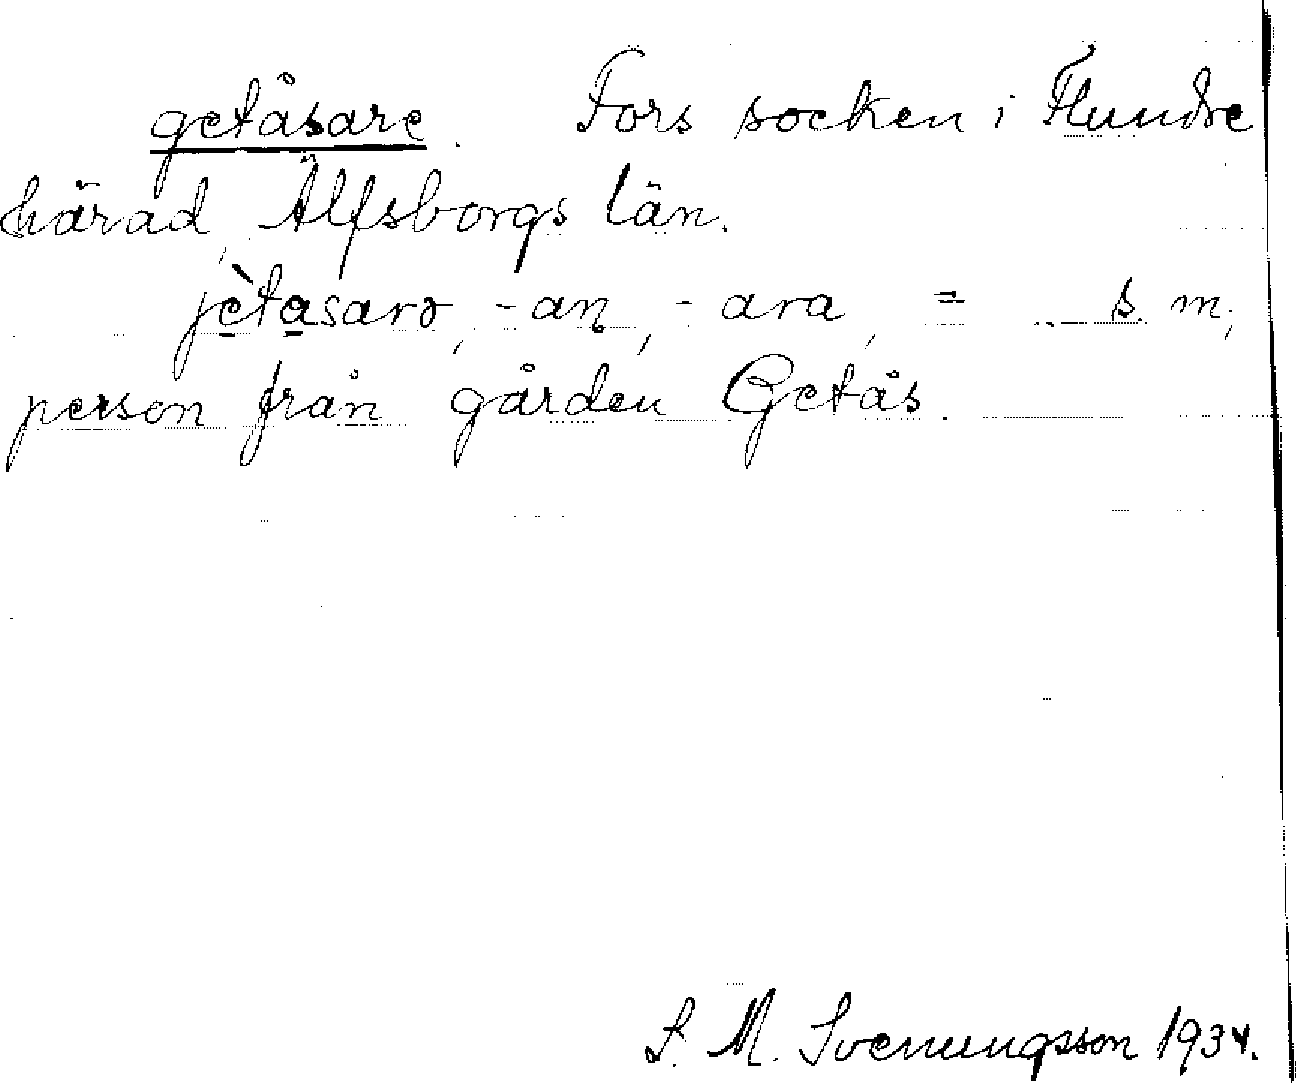 getåsare. Fors socken i Flundre
härad, Älfsborgs län.
jètasarə, -an, -ara, = s. m.;
person från gården Getås.
S. M. Svenungsson 1934.